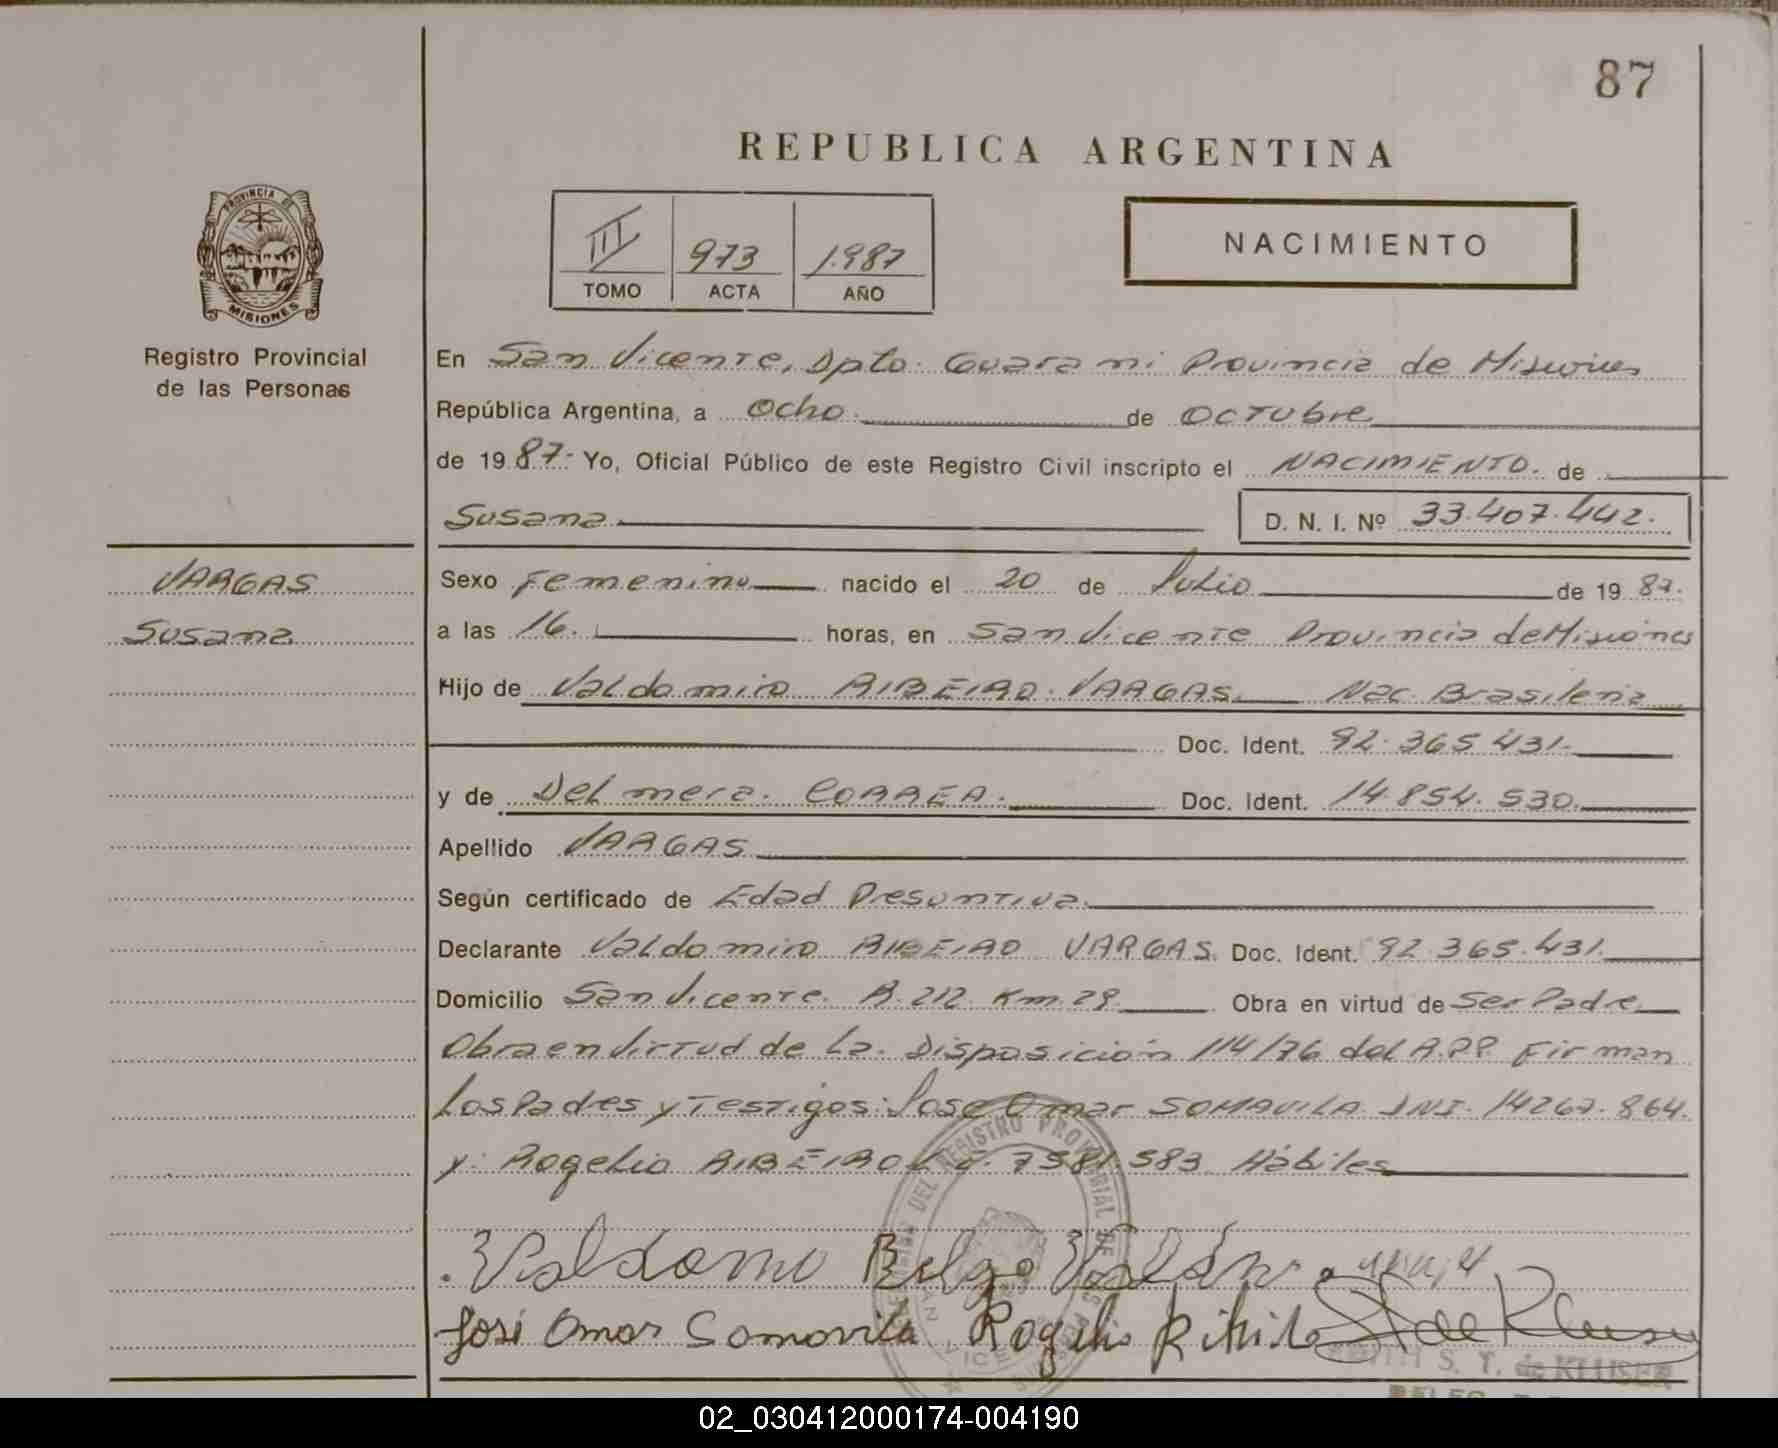 87
REPUBLICA ARGENTINA
PROVINCIA DE
MISIONES
III 973 1.987
TOMO ACTA AÑO
NACIMIENTO
Registro Provincial
de las Personas
En San Vicente, Dpto. Guarani Provincia de Misiones
República Argentina, a Ocho. de OCTUbre
de 1987- Yo, Oficial Público de este Registro Civil inscripto el NACIMIENTO. de
Susana D. N. I. Nº 33.407.442.
VARGAS
Susana
Sexo Femenino nacido el 20 de Julio de 1987.
a las 16. horas, en San Vicente Provincia de Misiones
Hijo de Valdomiro RIBEIRO. VARGAS. Nac. Brasileña
Doc. Ident. 92.365.431.
y de Delmera. CORREA. Doc. Ident. 14.854.530.
Apellido VARGAS
Según certificado de Edad Presuntiva.
Declarante Valdomiro RIBEIRO VARGAS. Doc. Ident. 92.365.431.
Domicilio San Vicente. R.212. Km.29. Obra en virtud de Ser Padre
Obra en Virtud de La. Disposición 114/76 del R.PP. Firman
Los Padres y Testigos: Jose Omar SOMAVILA DNI. 14267.864.
y: Rogelio RIBEIRO 7581.583. Hábiles
José Omar Somovila Rogelio
S. T. de KLUSER
02_030412000174-004190